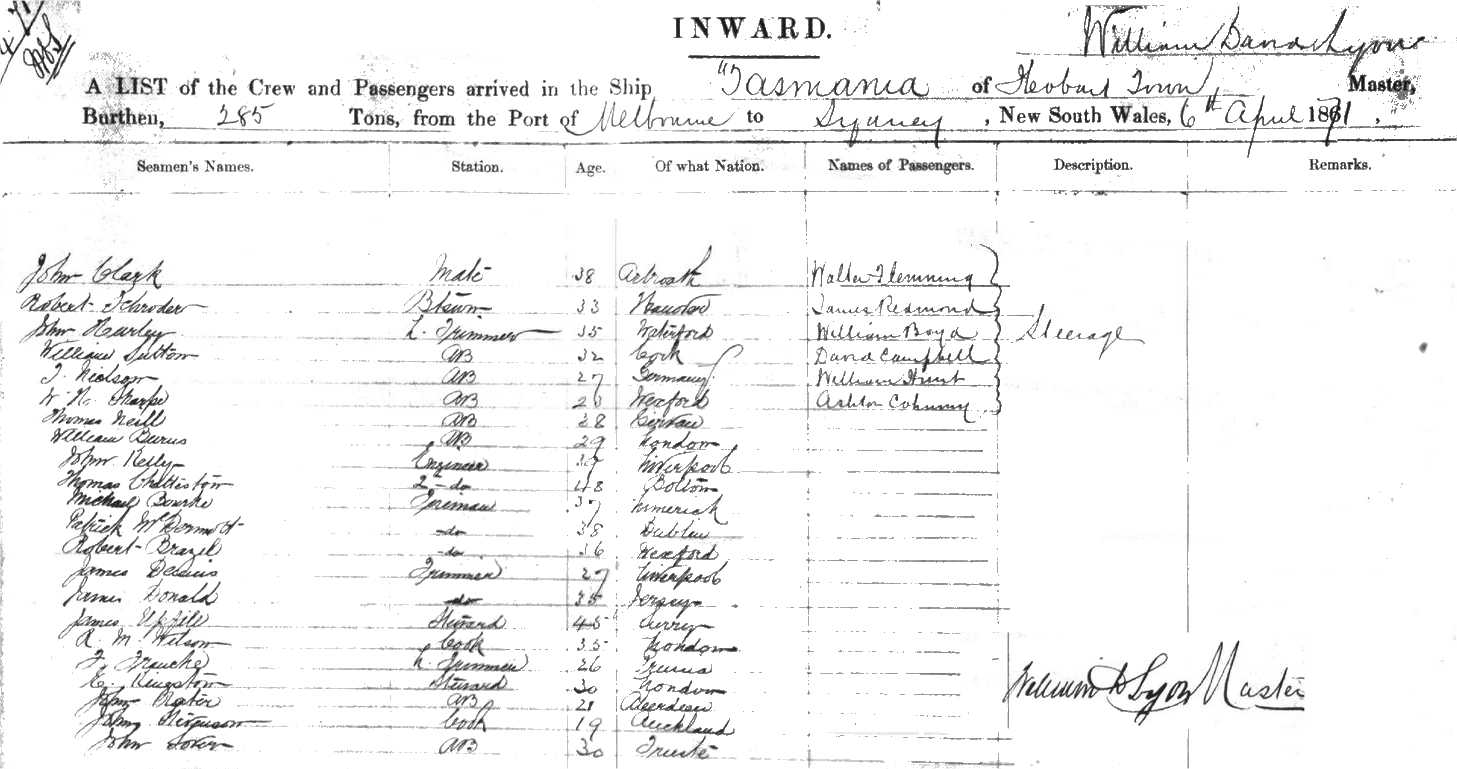 INWARD.
William David Lyons
A LIST of the Crew and Passengers arrived in the Ship "Tasmania of Hobart Town, Master,
Burthen, 285 Tons, from the Port of Melbourne to Sydney, New South Wales, 6th April 1871,
Seamen's Names. Station. Age. Of what Nation. Names of Passengers. Description. Remarks.
John Clark Mate 38 Arbroath Walter Flemming
Robert Schroder 33 Hanover James Redmond
John Hurley L. Trimmer 35 Waterford William Boyd Steerage
William Sutton AB 32 Cork David Campbell
T. Nielson AB 27 Germany William Hunt
W. N. Sharpe AB Wexford Ashton
Thomas Neill AB 28
William Burns AB 29 London
John Kelly Engineer Liverpool
Thomas 2 - do 48 Bolton
Michael Bourke Fireman 37 Limerick
Patrick McDermott -do- 38 Dublin
Robert Brazil -do- 36 Wexford
James Trimmer 27 Liverpool
James Donald -do- 35 Jersey
James Upfill Steward 45
R. M. Wilson Cook 35 London
F. Franche L. Trimmer 26
E. Kingston Steward 30 London
John AB 21 Aberdeen
John Ferguson Cook 19 Auckland
John AB 30 Trieste
William D Lyons Master